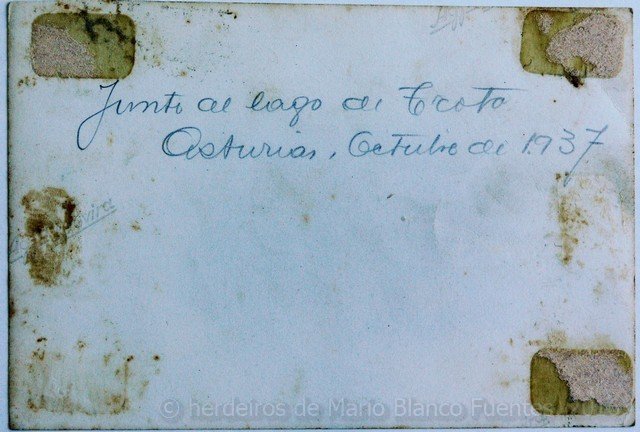 Junto al lago de Ercto
Asturias, Octubre de 1.937
© herdeiros de Mario Blanco Fuentes